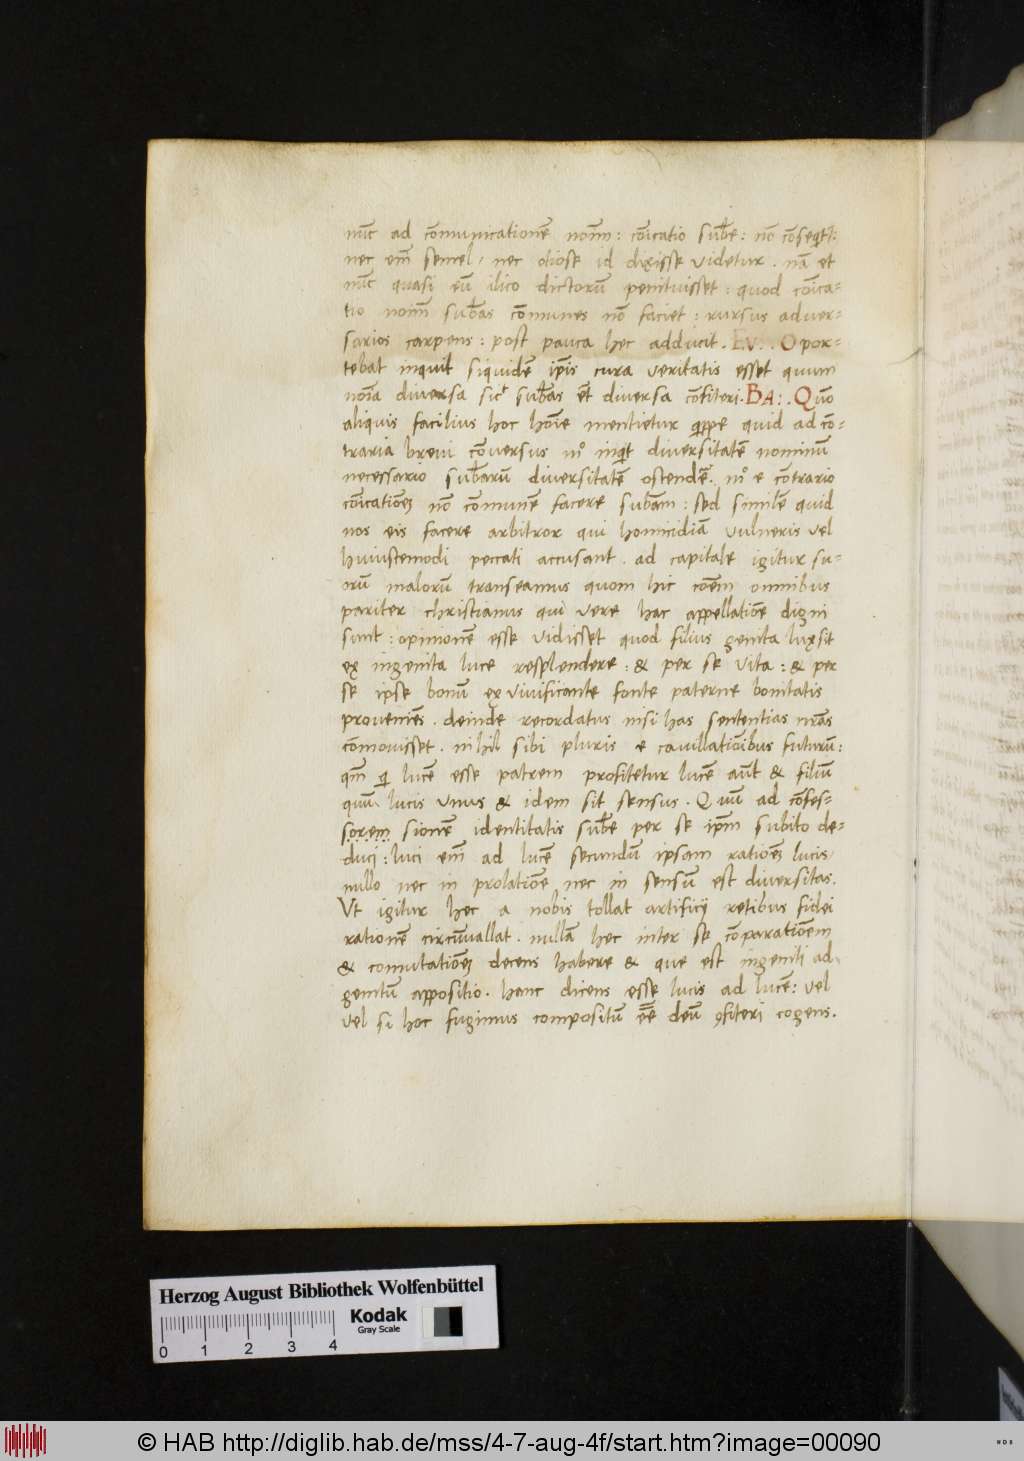 nūc ad cōmunicationē noīm: cōicatio subē: nō cōseqt̄:
nec em̄ semel, nec otiose id dixisse videtur. nā et
nūc quasi eū ilico dictorū penituisset: quod cōica-
tio noīm subās cōmunes nō faciet: rursus aduer-
sarios carpens: post pauca hec adducit. EV:. Opor-
tebat inquit siquidē ip̄is cura veritatis esset quum
noīa diversa sic subās et̄ diversa cōfiteri. BA:. Quō
aliquis facilius hoc hoīe mentietur quippe quid ad cō-
traria brevi cōversus mō inqt diversitatē nominū
necessario subārū diversitatē ostendē. mō e cōtrario
cōicationē nō cōmunē facere subām: sed similē quid
nos eis facere arbitror qui homicidiā vulneris vel
huiuscemodi peccati accusant. ad capitale igitur su-
orū malorū transeamus quom hic cōem omnibus
pariter christianus qui vere hac appellatiōe digni
sunt: opinionē esse vidisset quod filius genita lux sit
ex ingenita luce resplendere: & per se vita: & per
se ipse bonū ex vivificante fonte paterne bonitatis
proveniēs. deinde recordatus nisi has sententias nr̄as
cōmovisset. nihil sibi pluris e cavillatiōibus futurū:
qm̄ qi lucē esse patrem profitetur lucē aūt & filiū
quū lucis vnus & idem sit sensus. Quū ad cōfes-
sorem sionē identitatis subē per se ip̄m subito de-
duci: luci em̄ ad lucē secundū ipsam rationē lucis
nullo nec in prolatiōe nec in sensū est diversitas.
Vt igitur hec a nobis tollat artificij retibus fidei
rationē circūvallat. nullā hec inter se cōparatiōem
& comutatiōē decens habere & que est ingeniti ad
genitū appositio. hanc dicens esse lucis ad lucē: vel
vel si hoc fugimus compositū ēē deū ꝯfiteri cogens.
Herzog August Bibliothek Wolfenbüttel
Kodak
Gray Scale
0 1 2 3 4
© HAB http://diglib.hab.de/mss/4-7-aug-4f/start.htm?image=00090